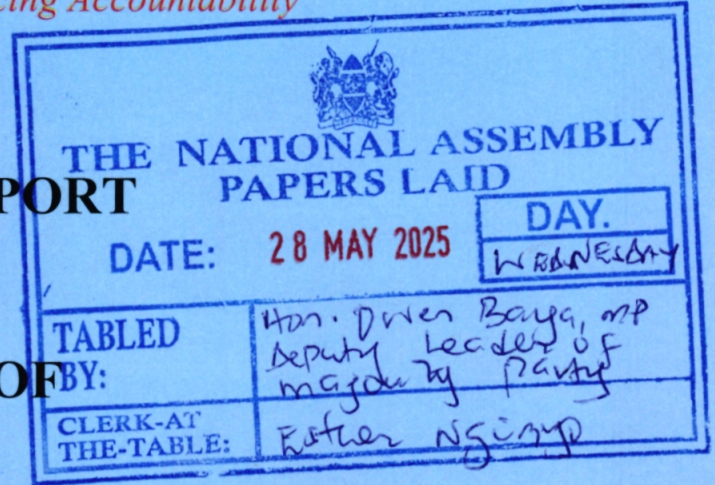 cing Accountability
THE NATIONAL ASSEMBLY
PAPERS LAID
PORT
DATE: 28 MAY 2025
DAY.
WEDNESDAY
TABLED
BY:
Hon. Owen Baya, MP
Deputy Leader of
Majority Party
OF
CLERK-AT
THE-TABLE:
Esther